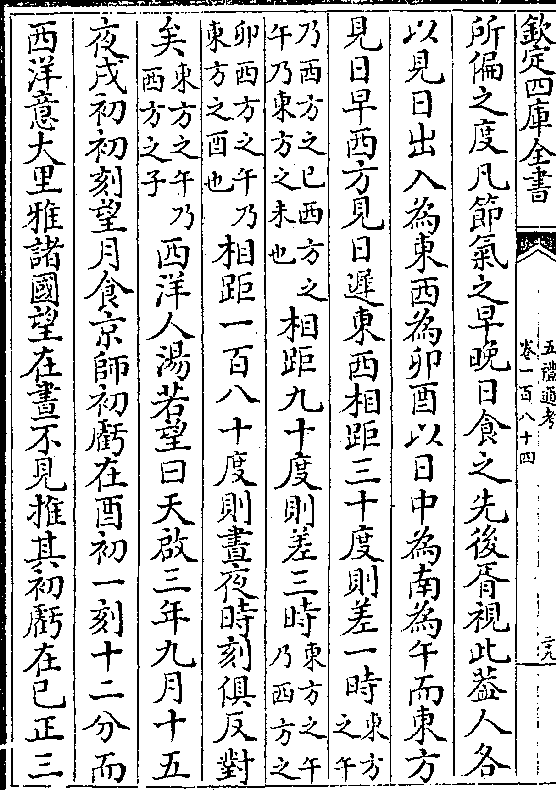 欽定四庫全書
五禮通考
卷一百八十四
二九
所偏之度凡節氣之早晚日食之先後胥視此葢人各
以見日出入為東西為卯酉以日中為南為午而東方
見日早西方見日遲東西相距三十度則差一時東方之午
乃西方之巳西方之午乃東方之未也相距九十度則差三時東方之午乃西方之
卯西方之午乃東方之酉也相距一百八十度則晝夜時刻俱反對
矣東方之午乃西方之子西洋人湯若望曰天啟三年九月十五
夜戌初初刻望月食京師初虧在酉初一刻十二分而
西洋意大里雅諸國望在晝不見推其初虧在巳正三